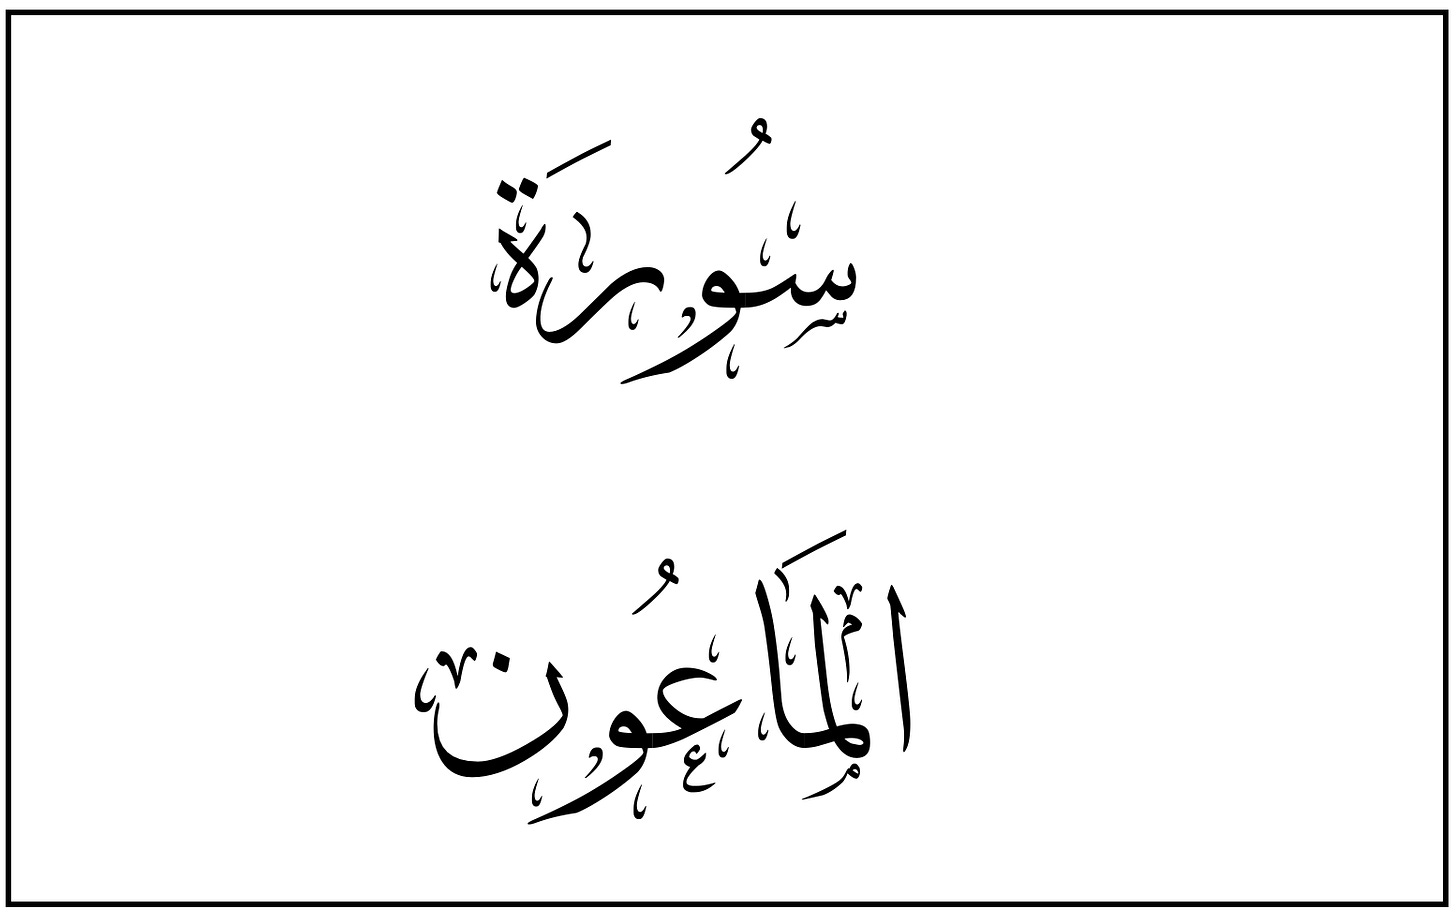 سُورَة
الْمَاعُون